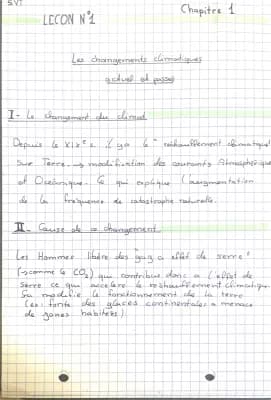 SVT
Chapitre 1
LECON N°1
Les changements climatiques
actuel et passé
I - Le changement du climat
Depuis le XIX e s. il y a le " réchauffement climatique
sur Terre. → modification des courants Atmosphérique
et Océanique. Ce qui explique l'augmentation
de la fréquence de catastrophe naturelle.
II - Cause de ce changement
Les Hommes libère des "gaz a effet de serre"
(→ comme le CO₂) qui contribue donc a l'effet de
serre ce qui accelère le réchauffement climatique.
Sa modifie le fonctionnement de la terre
(ex: fonte des glaces continentales → menace
de zones habitées)